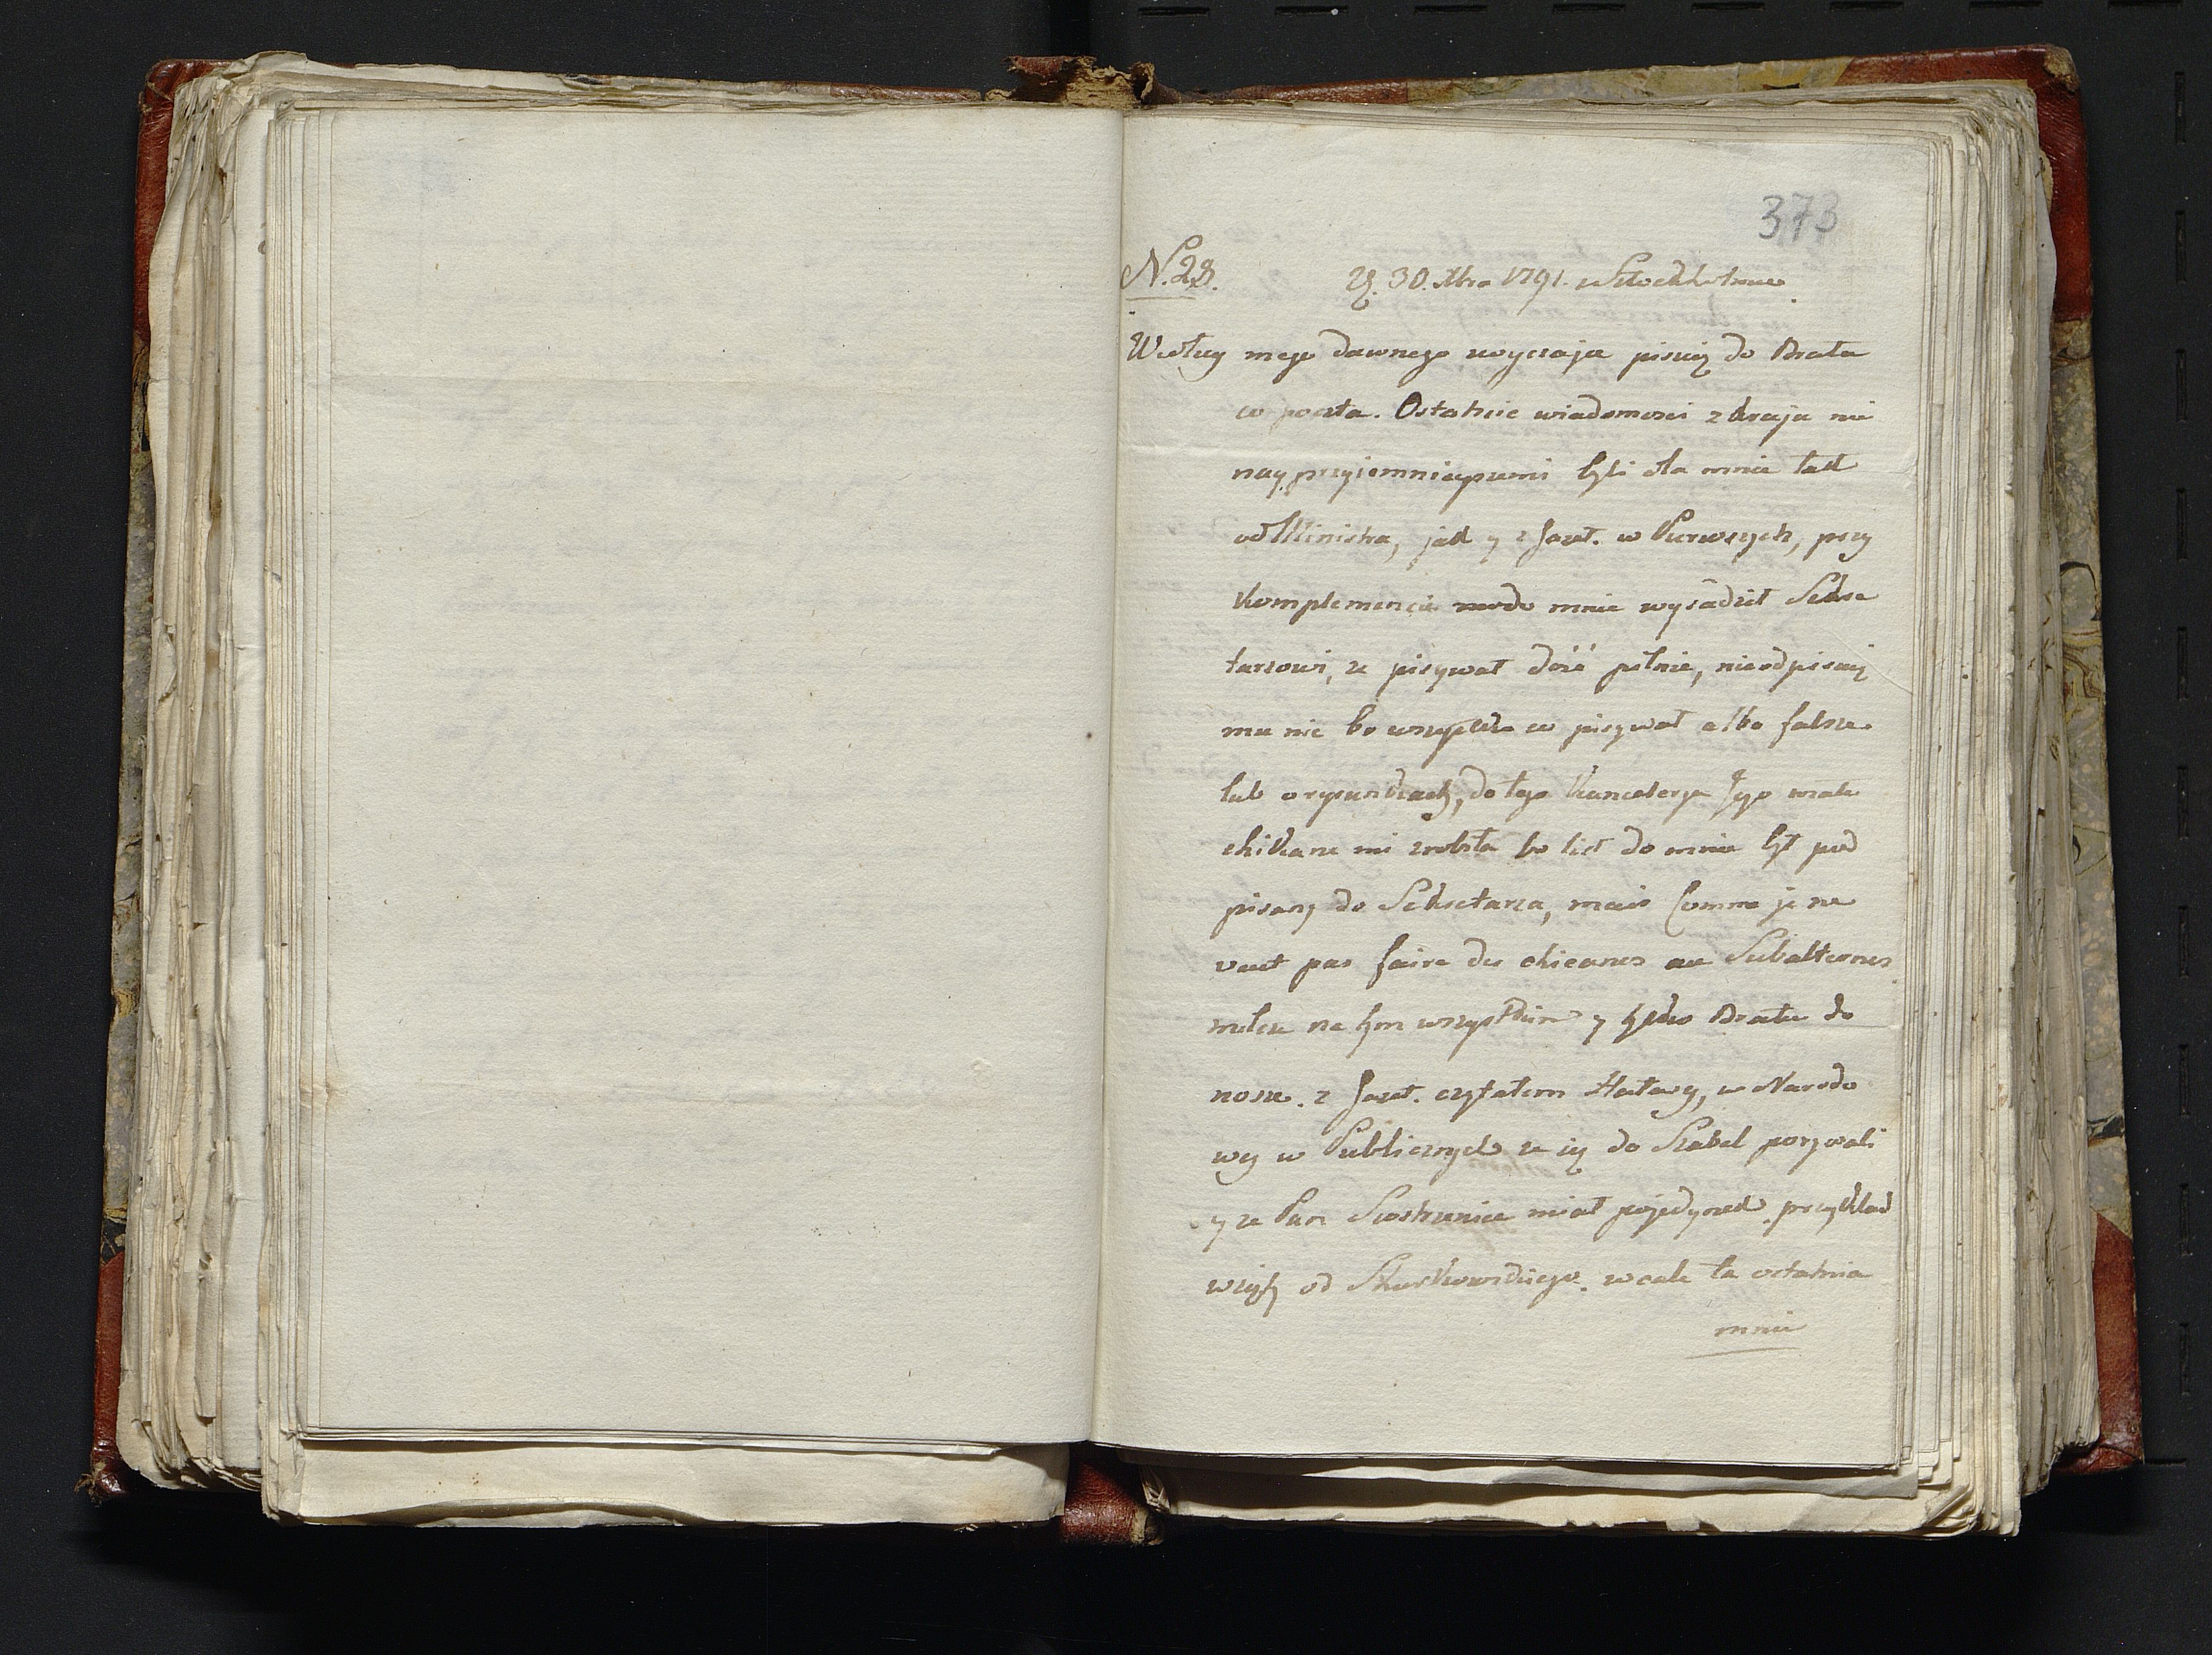 373
N. 28. D. 30. Xbra 1791. z Sztockholmu.
Według mego dawnego zwyczaju piszę do Brata
co poczta. Ostatnie wiadomosci z kraju nie
nayprzyiemnieyszemi byli dla mnie tak
od Ministra, jak y z Gazet. w Pierwszych, przy
Komplemencie mnie wysadził Sekre
tarzowi, ze pisywał dość pilnie, nieodpisuię
mu nic bo wszystko co pisywał albo falsze
lub o rysunkach, do tego Kancelerya Jego małe
chikane mi zrobiła bo list do mnie był pod
pisany do Sekretarza, mais Comme je ne
veut pas faire des chicanes au Subalternes
milcze na tym wszystkim y tylko Bratu do
nosze. z Gazet. czytałem Hałasy, w Narodo
wey w Publicznych ze się do Szabel porywali
y ze Pan Siostrzenice miał pojedynek. przykład
wzięty od Skarkowskiego. wcale ta ostatnia
mnie